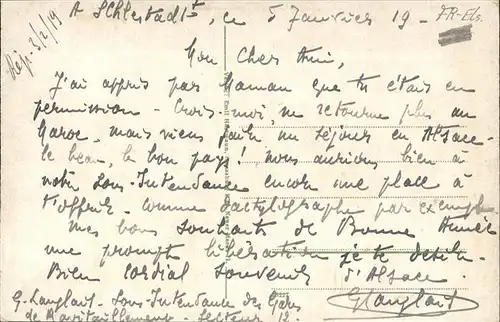 A Schlestadt, ce 5 Janvier 19 - FR-Els.
Rép. 3/2/19
Mon cher Ami,
J'ai appris par Maman que tu étais en
permission - Crois-moi, ne retourne plus au
Maroc, mais viens faire un séjour en Alsace -
le beau, le bon pays ! nous aurions bien à
notre Sous-Intendance encore une place à
t'offrir - comme dactylographe par exemple
Mes bons souhaits de Bonne Année
une prompte libération je te désire -
Bien cordial souvenir d'Alsace.
G. Langlait - Sous-Intendance des Gares
de Ravitaillement - Secteur 12.
GLanglait